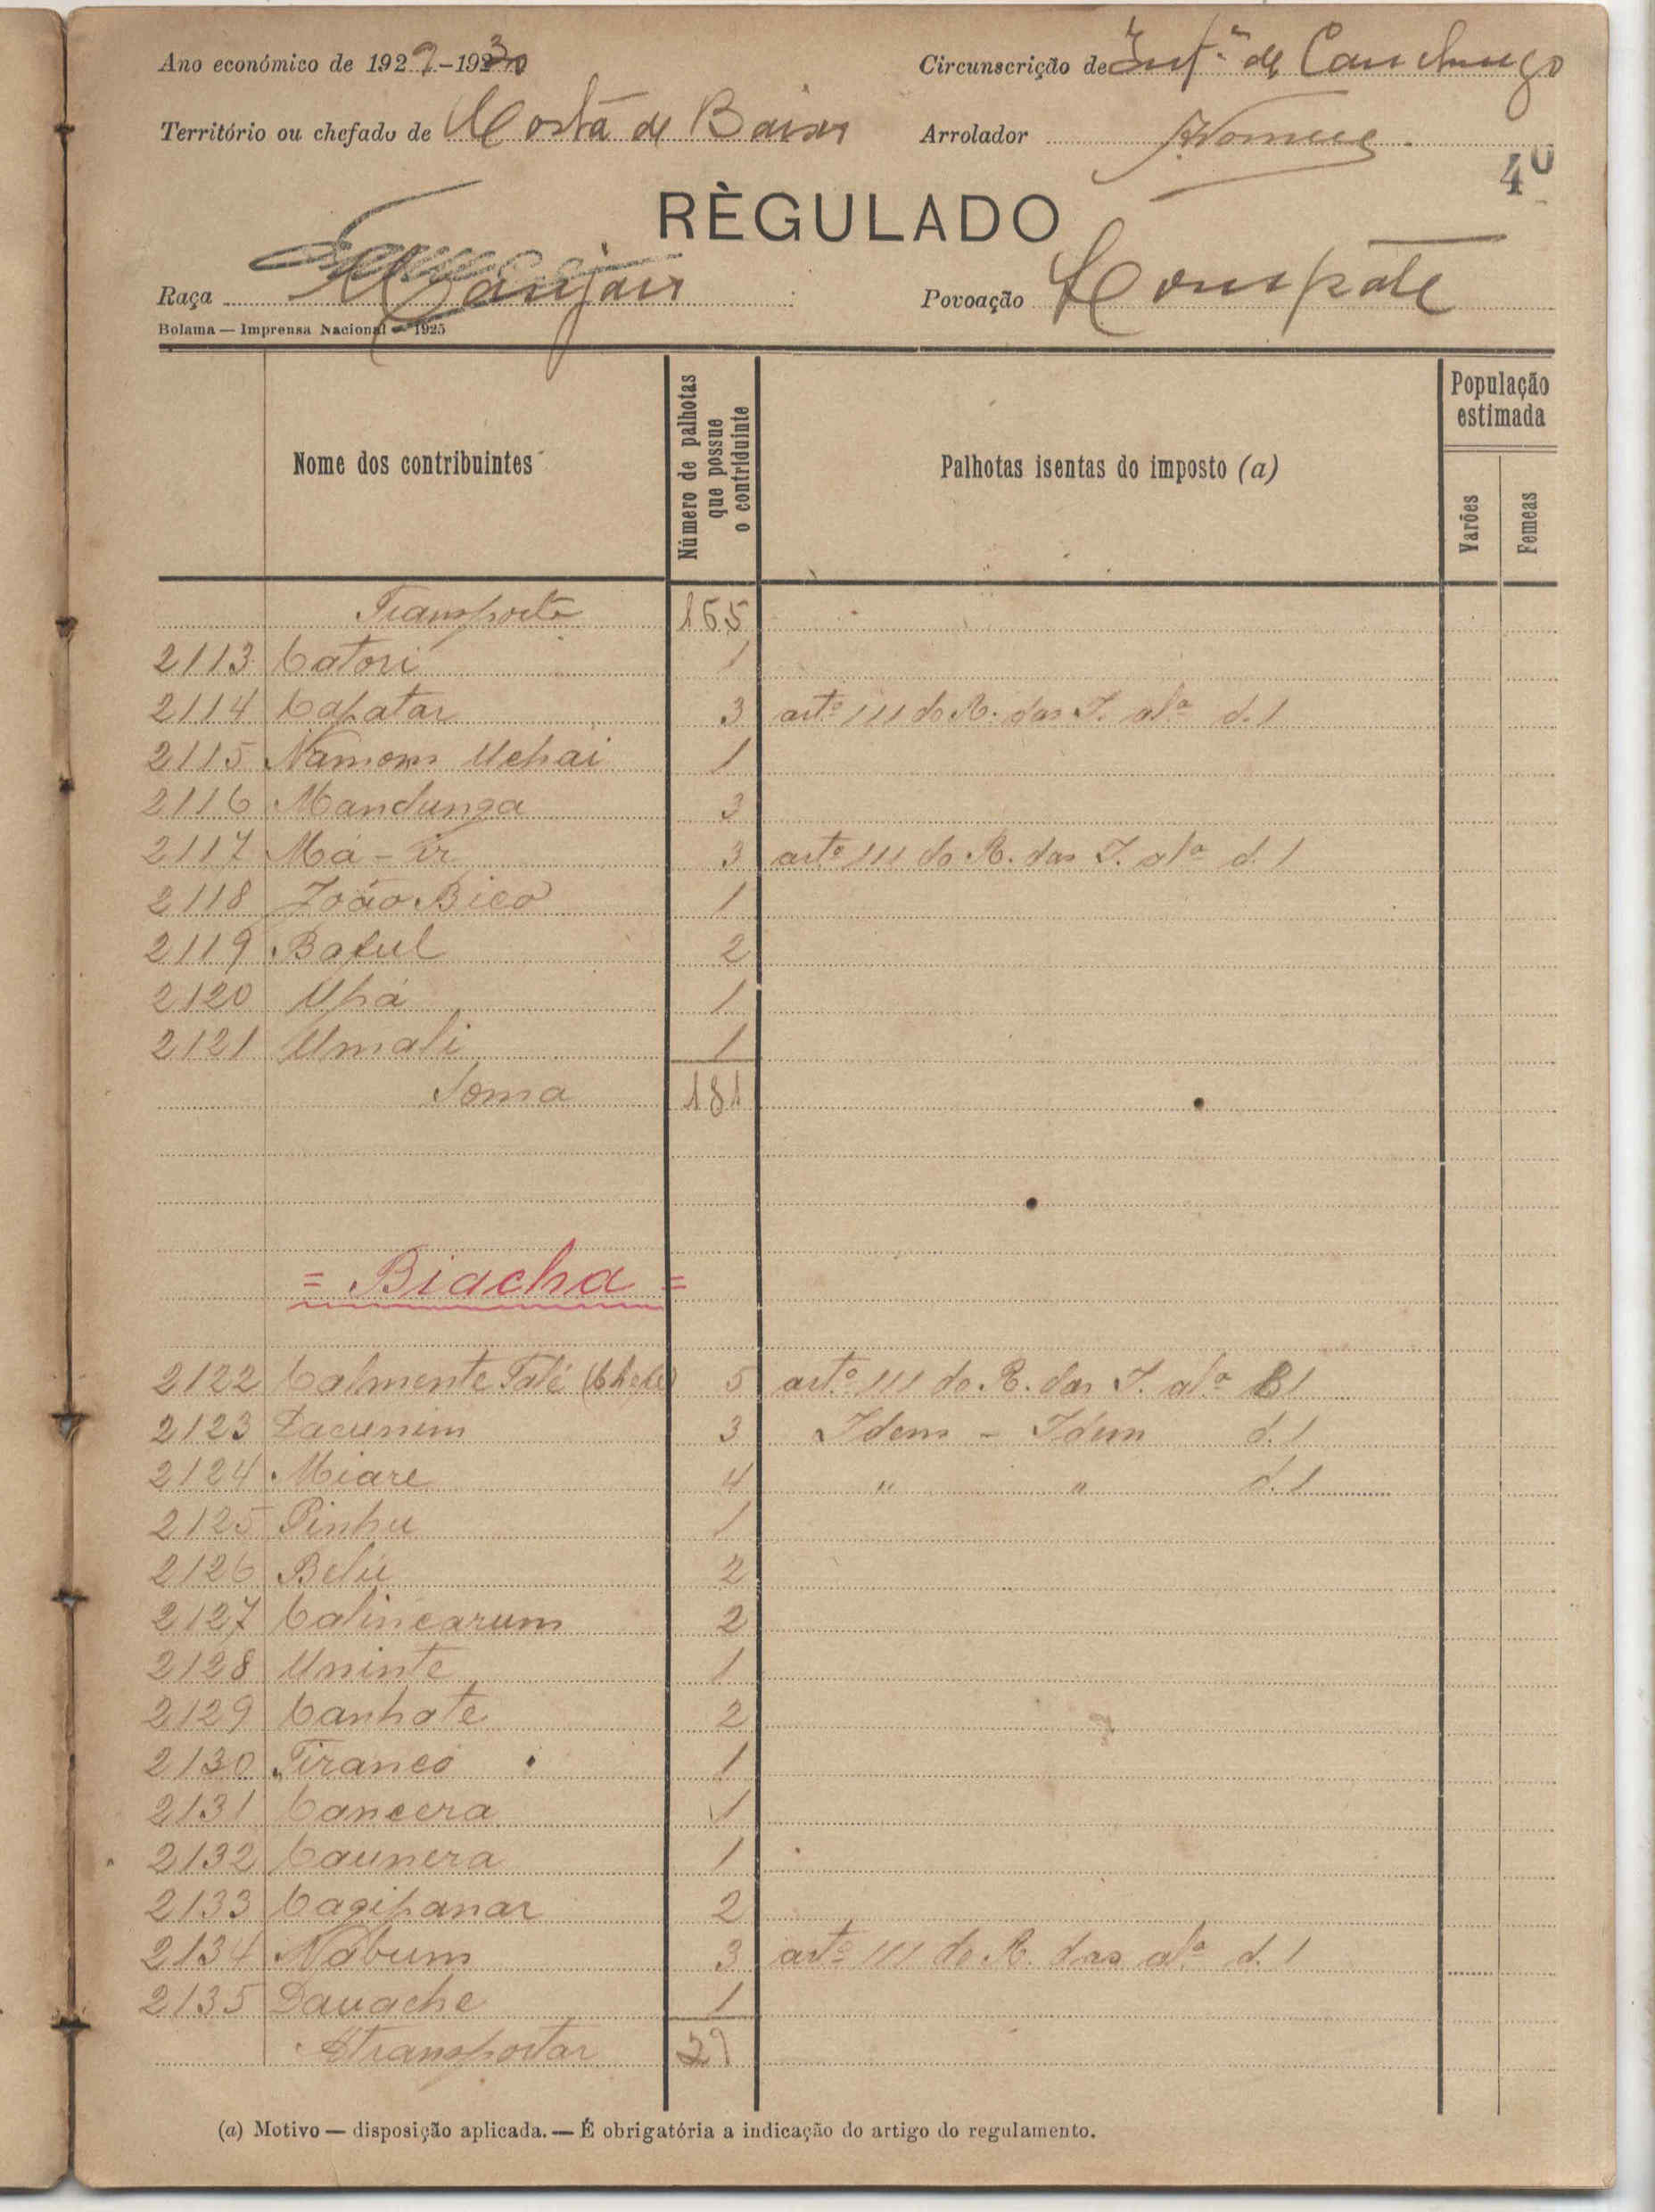 Ano económico de 1929-1930
Circunscrição de Int.ª de Canchungo
Território ou chefado de Costa de Baixo
Arrolador
40
RÈGULADO
Raça Manjaco
Povoação Compate
Bolama — Imprensa Nacional — 1925
Nome dos contribuintes
Número de palhotas que possue o contriduinte
Palhotas isentas do imposto (a)
População estimada
Varões
Femeas
Transporte 165
2113 Catori 1
2114 Capatar 3 artº 111 do R. das I. alª d. 1
2115 Namom Uchai 1
2116 Mandunga 3
2117 Má-ir 3 artº 111 do R. das I. alª d. 1
2118 João Bico 1
2119 Baful 2
2120 Upá 1
2121 Umali 1
Soma 181
= Biacha =
2122 Calmente Talé (Chefe) 5 artº 111 do R. das I. alª B1
2123 Dacunim 3 Idem - Idem d. 1
2124 Miare 4 " " d. 1
2125 Pinhu 1
2126 Belú 2
2127 Calincarum 2
2128 Uninte 1
2129 Canhate 2
2130 Tirancó 1
2131 Cancera 1
2132 Caunera 1
2133 Cagipanar 2
2134 Nabum 3 artº 111 do R. das alª d. 1
2135 Dauache 1
A transportar 29
(a) Motivo — disposição aplicada. — É obrigatória a indicação do artigo do regulamento.